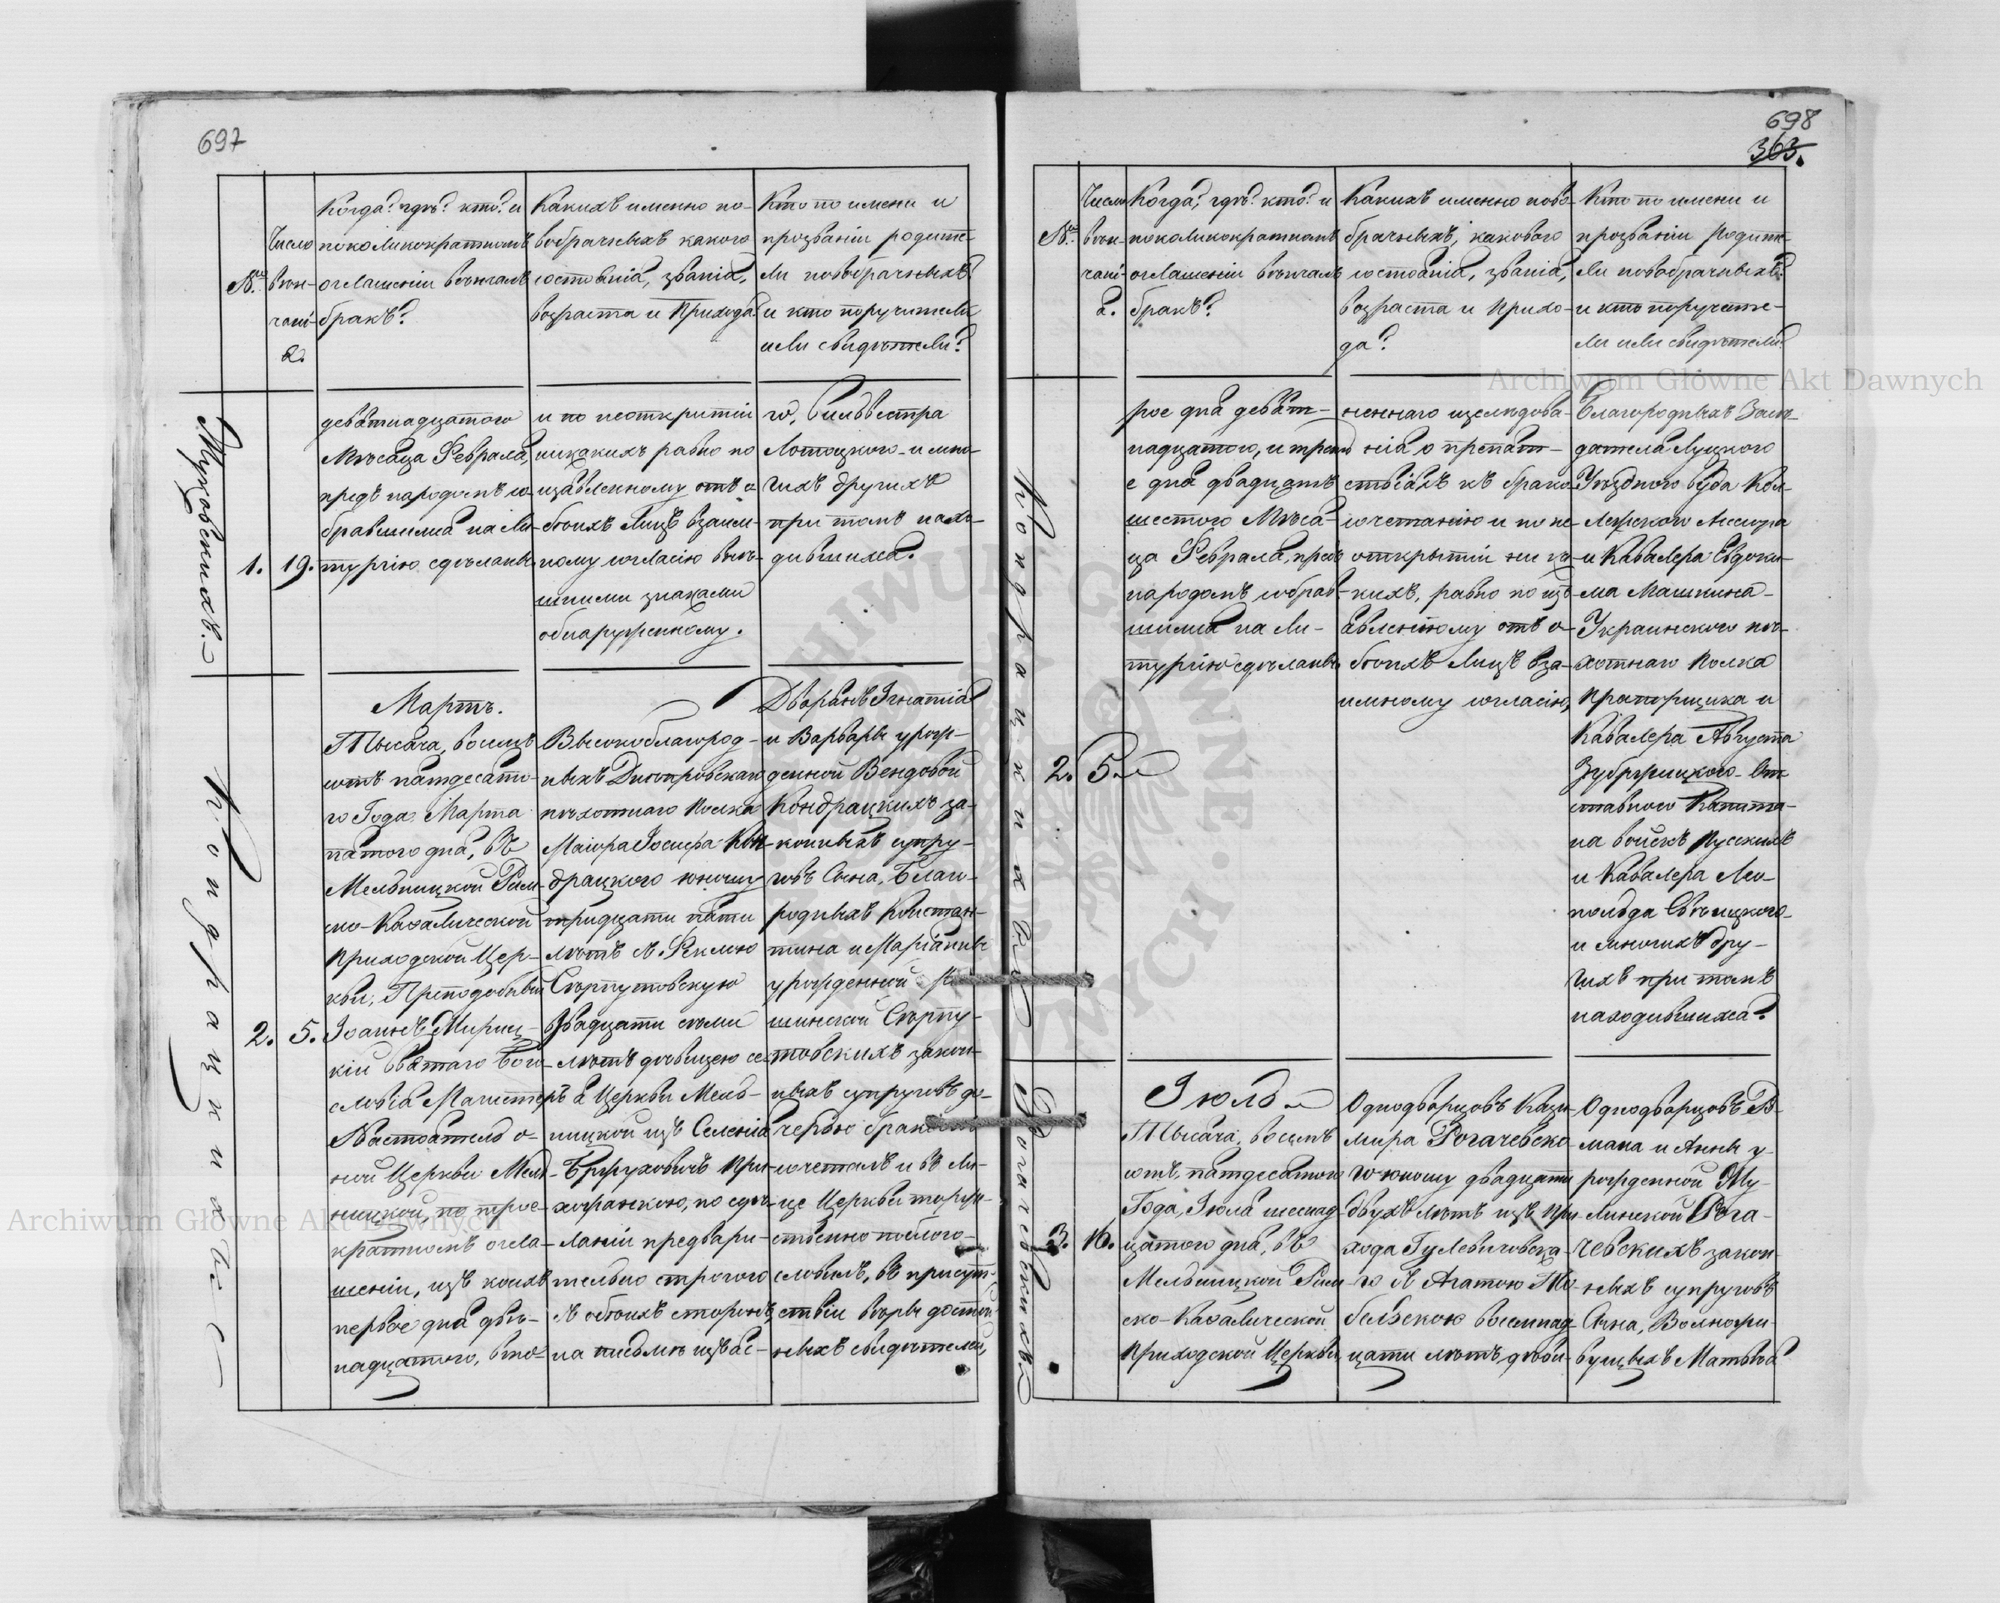 697
№.
Число
вѣн-
чані-
я.
Когда? гдѣ? кто? и
поколикократномъ
оглашеніи вѣнчалъ
бракъ?
Какихъ именно но-
вобрачныхъ какого
состоянія, званія,
возраста и Прихода
Кто по имени и
прозваніи родите-
ли новобрачныхъ?
и кто поручители
или свидѣтели?
1.
19.
девятнадцатого
Мѣсаца Февраля,
предъ народомъ со-
бравшимся на Ли-
тургію сдѣланы
и по неоткритіи
никакихъ равно по
изъявленному отъ о-
боихъ Лицъ взаим-
ному согласію внѣ-
шними знаками
обнаруженному.
го, Сильвестра
Лотоцкого и мно-
гихъ другихъ
при томъ нахо-
дившихся.
Кондрацкихъ
2.
5.
Мартъ.
Тысяча, восемь
сотъ пятдесято-
го Года Марта
пятого дня, въ
Мельницкой Рим-
ско-Каѳалической
Приходской Цер-
кви, Преподобный
Іоаннъ
кій Святаго Бого-
словія Магистръ
Настоятель о-
ной Церкви Мель-
ницкой, по трое-
кратномъ огла-
шеніи, изъ коихъ
первое дня двѣ-
надцатого, вто-
Высокоблагород-
ныхъ Днѣпровскаго
пѣхотнаго Полка
Маіора Іосифа Кон-
драцкого юношу
тридцати пяти
лѣтъ съ Феклею
Сѣрпутовскую
двадцати семи
лѣтъ дѣвицею се-
я Церкви Мель-
ницкой изъ Селенія
Бруховичъ При-
хожанкою, по сдѣ-
ланіи предвари-
тельно строгого
съ обоихъ сторонъ,
на письмѣ изъяс-
Дворянъ Игнатія
и Варвары урож-
денной Вендовой
Кондрацкихъ за-
конныхъ супру-
говъ Сына, Благо-
родныхъ Констан-
тина и Маріанны
урожденной
шинской Сѣрпу-
товскихъ закон-
ныхъ супруговъ до-
черью бракомъ
сочеталъ и въ ли-
це Церкви торже-
ственно поблого-
словилъ, въ присут-
ствіи вѣры достой-
ныхъ свидѣтелей,
698
363.
№.
Число
вѣн-
чані-
я.
Когда? гдѣ? кто? и
поколикократномъ
оглашеніи вѣнчалъ
бракъ?
Какихъ именно ново-
брачныхъ, какового
состоянія, званія,
возраста и Прихо-
да?
Кто по имени и
прозваніи родите-
ли новобрачныхъ?
и кто поручите-
ли или свидѣтели?
Кондрацкихъ
2.
5.
рое дня девят-
надцатого, и треті-
е дня двадцать
шестого Мѣса-
ца Февраля, предъ
народомъ собрав-
шимся на Ли-
тургію сдѣланы
неннаго изслѣдова-
нія о препят-
ствіяхъ къ брако-
сочетанію и по не
открытіи ни ка-
кихъ, равно по изъ-
явленному отъ о-
боихъ Лицъ вза-
имному согласію,
Благородныхъ Засѣ-
дателя Луцкого
Уѣздного Суда Кол-
лежского Ассесора
и Кавалера Евдоки-
ма Машкина-
Украинского пѣ-
хотнаго Полка
Прапорщика и
Кавалера Августа
Зубржицкого- От-
ставного Капита-
на войскъ Русскихъ
и Кавалера Лео-
польда
и многихъ дру-
гихъ при томъ
находившихся.
Рогачевскихъ.
3.
16.
Іюль
Тысяча, восемь
сотъ, пятдесятого
Года, Іюля шеснад-
цатого дня, въ
Мельницкой Рим-
ско-Каѳалической
Приходской Церкви,
Однодворцовъ Кази-
мира Рогачевско-
го юношу двадцати
двухъ лѣтъ изъ При-
хода Гулевичовска-
го съ Агатою
восемнад-
цати лѣтъ, дѣви-
Однодворцовъ Ро-
мана и Анны у-
рожденной Му-
линской Рога-
чевскихъ закон-
ныхъ супруговъ
Сына, Вольножи-
вущихъ Матвѣя
Archiwum Główne Akt Dawnych
Archiwum Główne Akt Dawnych